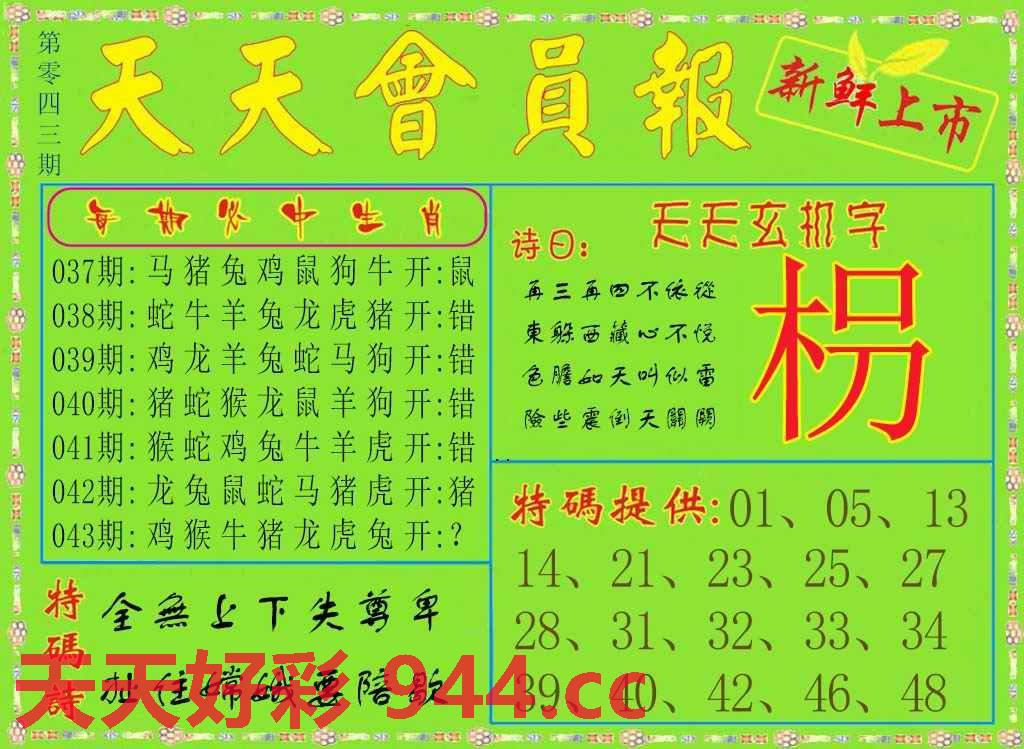 第零四三期
天天會員報
新鲜上市
每期必中生肖
037期: 马猪兔鸡鼠狗牛 开:鼠
038期: 蛇牛羊兔龙虎猪 开:错
039期: 鸡龙羊兔蛇马狗 开:错
040期: 猪蛇猴龙鼠羊狗 开:错
041期: 猴蛇鸡兔牛羊虎 开:错
042期: 龙兔鼠蛇马猪虎 开:猪
043期: 鸡猴牛猪龙虎兔 开:？
天天玄机字
诗曰:
再三再四不依從
東躲西藏心不悦
色膽如天叫似雷
險些震倒天關闕
枴
特碼提供: 01、05、13
14、21、23、25、27
28、31、32、33、34
39、40、42、46、48
特碼詩
全無上下失尊卑
扯住嫦娥要陪歇
天天好彩 944.cc